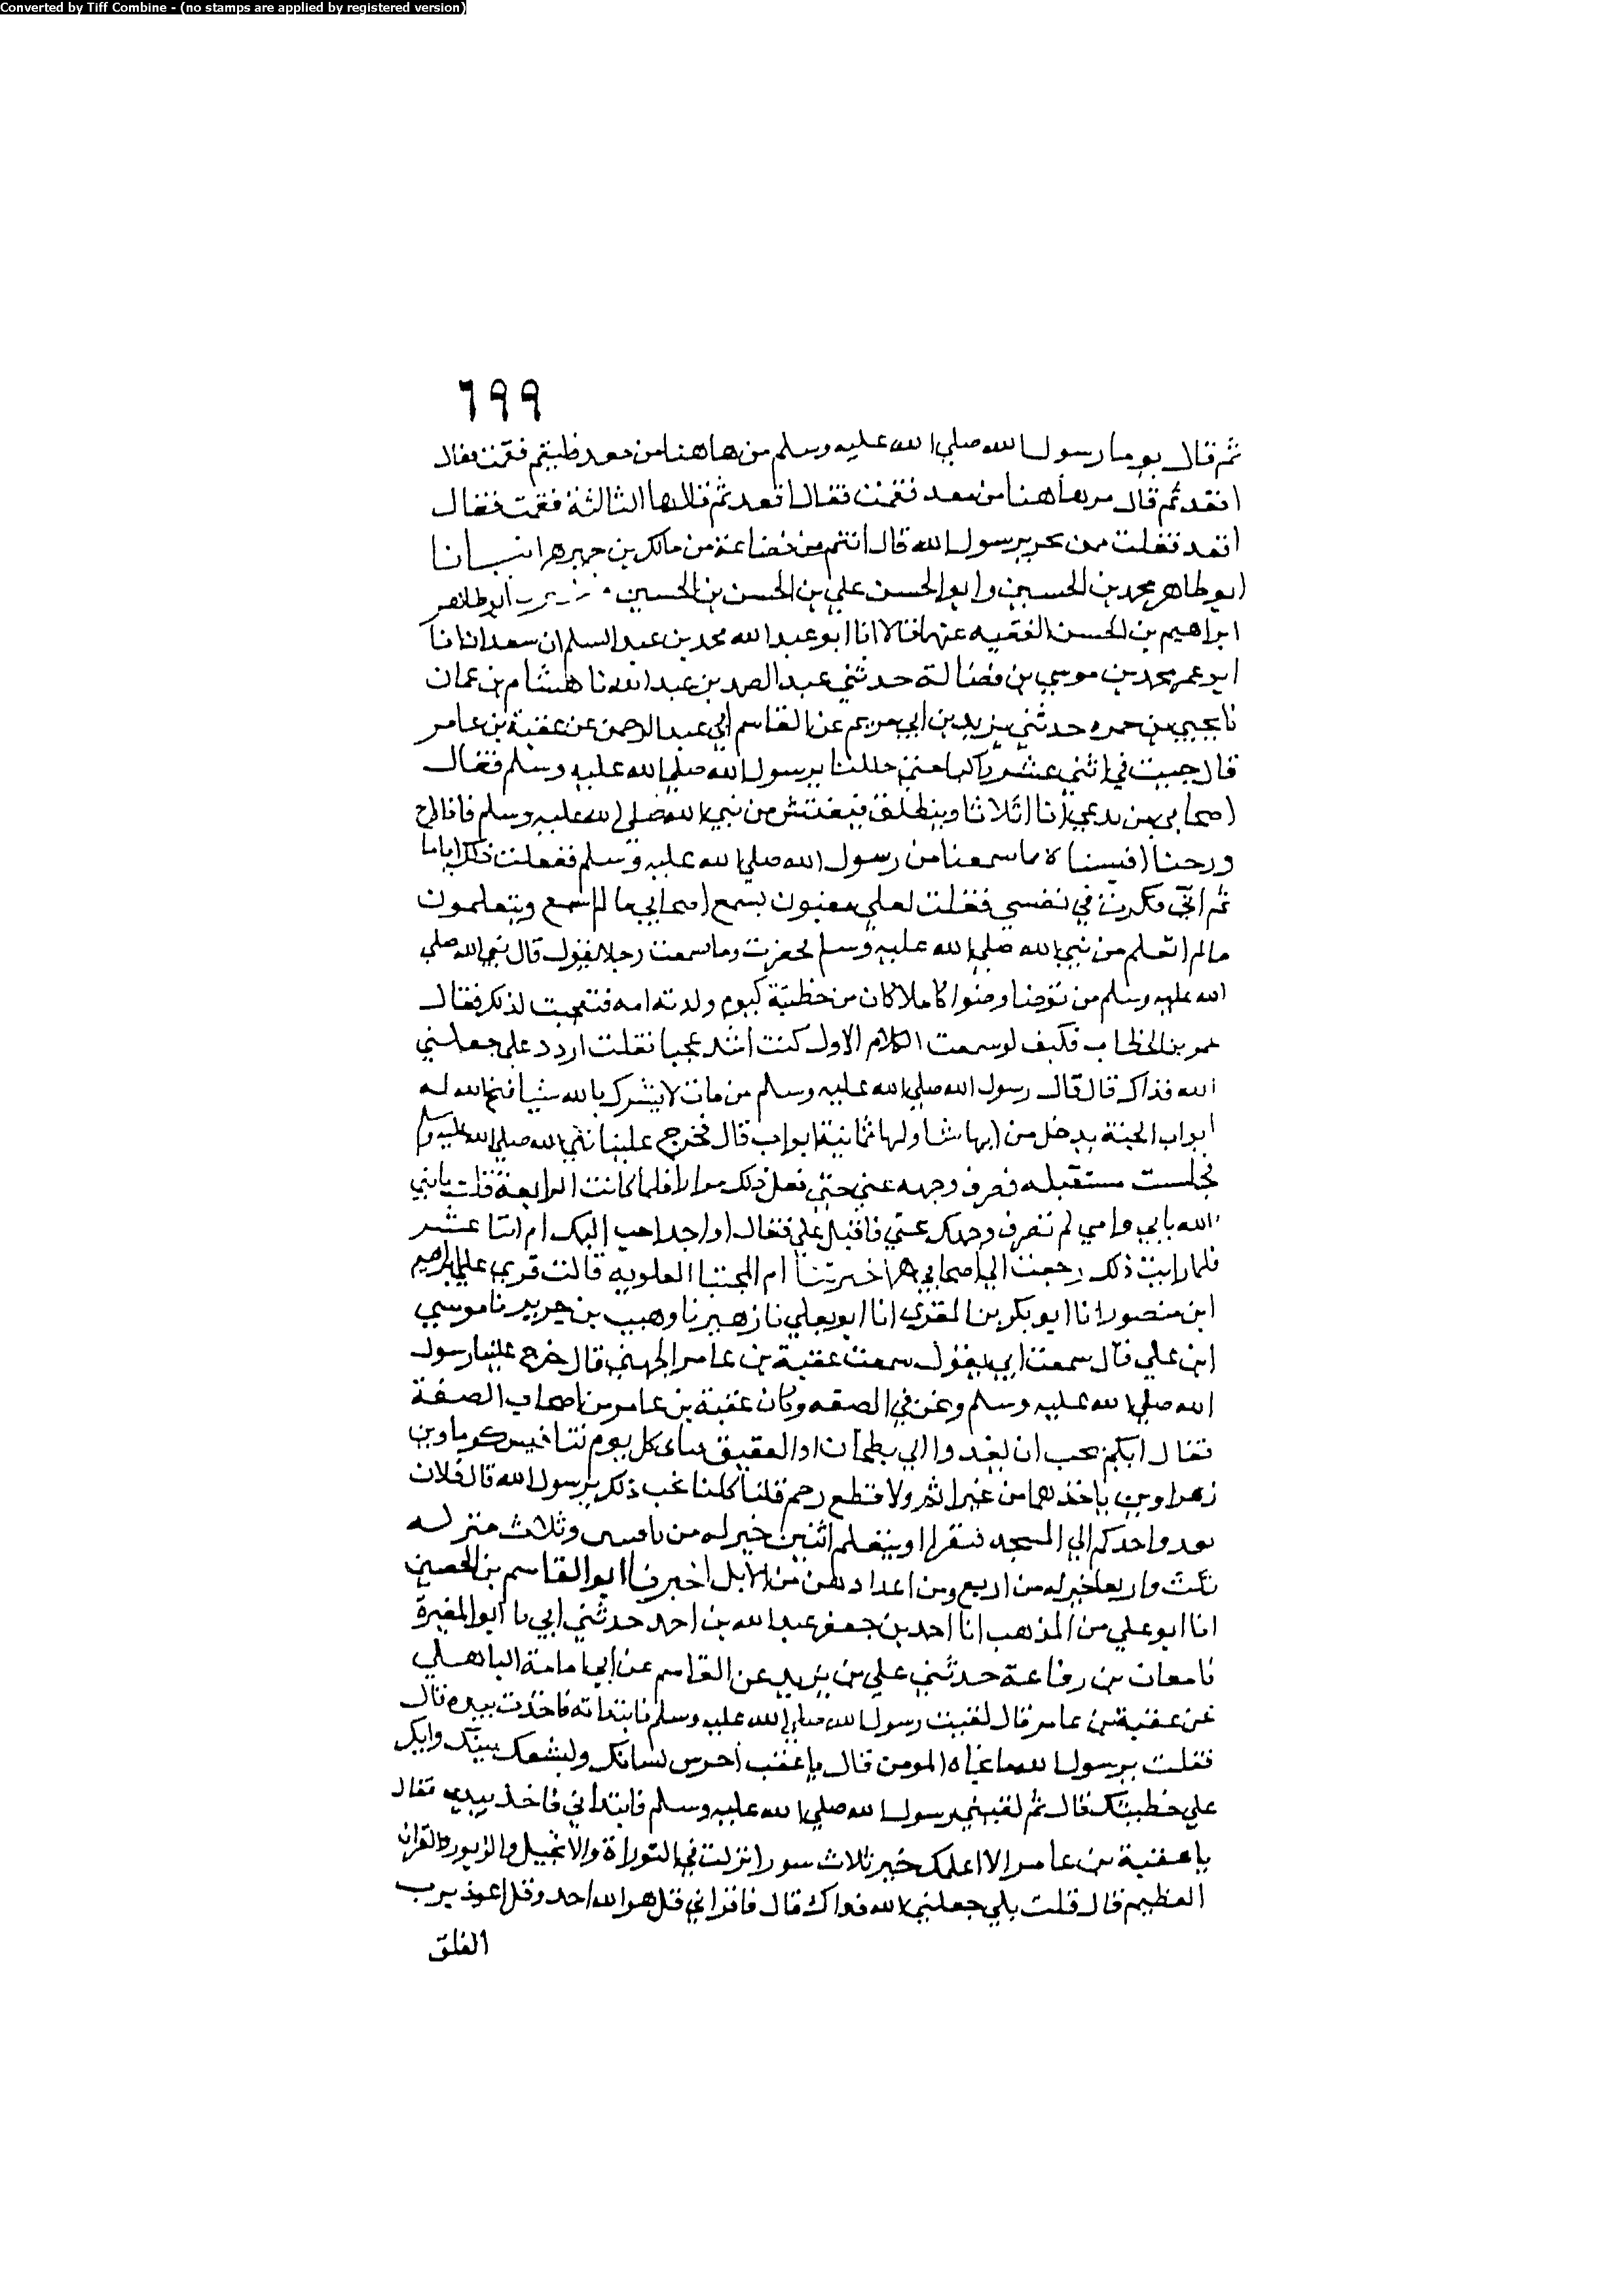 Converted by Tiff Combine - (no stamps are applied by registered version)
٦٩٩
ثم قال يوما رسول الله صلي الله عليه وسلم من هاهنا من معد فليقم فقمت فقال
اقعد ثم قال من هاهنا من معد فقمت فقال اقعد ثم قالها الثالثة فقمت فقال
اقعد فقلت ممن نحن يرسول الله قال انتم من قضاعة من مالك بن حمير انبانا
ابو طاهر محمد بن الحسين وابو الحسن علي بن الحسن بن الحسين ابو طاهر
ابراهيم بن الحسن الفقيه عنهما قالا انا ابو عبد الله محمد بن عبد السلم ان سعدان انا
ابو عمر محمد بن موسي بن فضالة حدثني عبد الصمد بن عبد الله نا هشام بن عمان
نا يحيي بن حمره حدثني يزيد بن ابي مريم عن القاسم ابي عبد الرحمن عن عقبة بن عامر
قال جيت في اثني عشر راكبا حتي حللنا برسول الله صلي الله عليه وسلم فقال
اصحابي من يرعي لنا ابلنا وينطلق فيقتبس من نبي الله صلي الله عليه وسلم فاذا راح
ورحنا اقبسناه ما سمعنا من رسول الله صلي الله عليه وسلم ففعلت ذلك اياما
ثم اني فكرت في نفسي فقلت لعلي مغبون يسمع اصحابي ما لم اسمع ويتعلمون
ما لم اتعلم من نبي الله صلي الله عليه وسلم فحضرت وما سمعت رجلا يقول قال نبي الله صلي
الله عليه وسلم من توضا وضوا كاملا كان من خطيئة كيوم ولدته امه فتعجبت لذلك فقال
عمر بن الخطاب فكيف لو سمعت الكلام الاول كنت اشد عجبا فقلت اردد علي جعلني
الله فداك قال قال رسول الله صلي الله عليه وسلم من مات لا يشرك بالله شيا فتح الله له
ابواب الجنة يدخل من ايها شا ولها ثمانية ابواب قال فخرج علينا نبي الله صلي الله عليه وسلم
فجلست مستقبله فصرف وجهه عني حتي فعل ذلك مرارا فلما كانت الرابعة قلت يا نبي
الله بابي وامي لم تصرف وجهك عني فاقبل علي فقال اواحد احب اليك ام اثنا عشر
فلما رايت ذلك رجعت الي اصحابي ه اخبرتنا ام المجتبا العلويه قالت قري علي ابراهيم
ابن منصور انا ابو بكر بن المقري انا ابو يعلي نا زهير نا وهيب بن جرير نا موسي
ابن علي قال سمعت ابي يقول سمعت عقبة بن عامر الجهني قال خرج علينا رسول
الله صلي الله عليه وسلم ونحن في الصفه وكان عقبة بن عامر من اصحاب الصفة
فقال ايكم يحب ان يغدوا الي بطحان او العقيق كل يوم بناقتين كوماوين
زهراوين ياخذهما من غير اثم ولا قطع رحم قلنا كلنا نحب ذلك يرسول الله قال فلان
يعدوا احدكم الي المسجد فيقرا او يتعلم اثنين خير له من ناقتين وثلاث خير له
ثلث واربعا خير له من اربع ومن اعدادهن من الابل اخبرنا ابو القاسم بن الحصين
انا ابو علي من المذهب انا احمد بن جعفر عبد الله بن احمد حدثني ابي نا ابو المغيرة
نا معان بن رفاعة حدثني علي بن يزيد عن القاسم عن ابي امامة الباهلي
عن عقبة بن عامر قال لقيت رسول الله صلي الله عليه وسلم فابتداته فاخذت بيده فقال
فقلت يرسول الله ما نجاة المومن قال يا عقبة احرس لسانك وليسعك بيتك وابك
علي خطيئتك قال ثم لقيني رسول الله صلي الله عليه وسلم فابتداني فاخذ بيدي فقال
يا عقبة بن عامر الا اعلمك خير ثلاث سور انزلت في التوراة والانجيل والزبور والقران
العظيم قال قلت بلي جعلني الله فداك قال فاقراني قل هو الله احد وقل اعوذ برب
الفلق